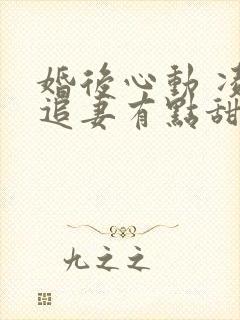 婚後心動
追妻有點甜
九之之